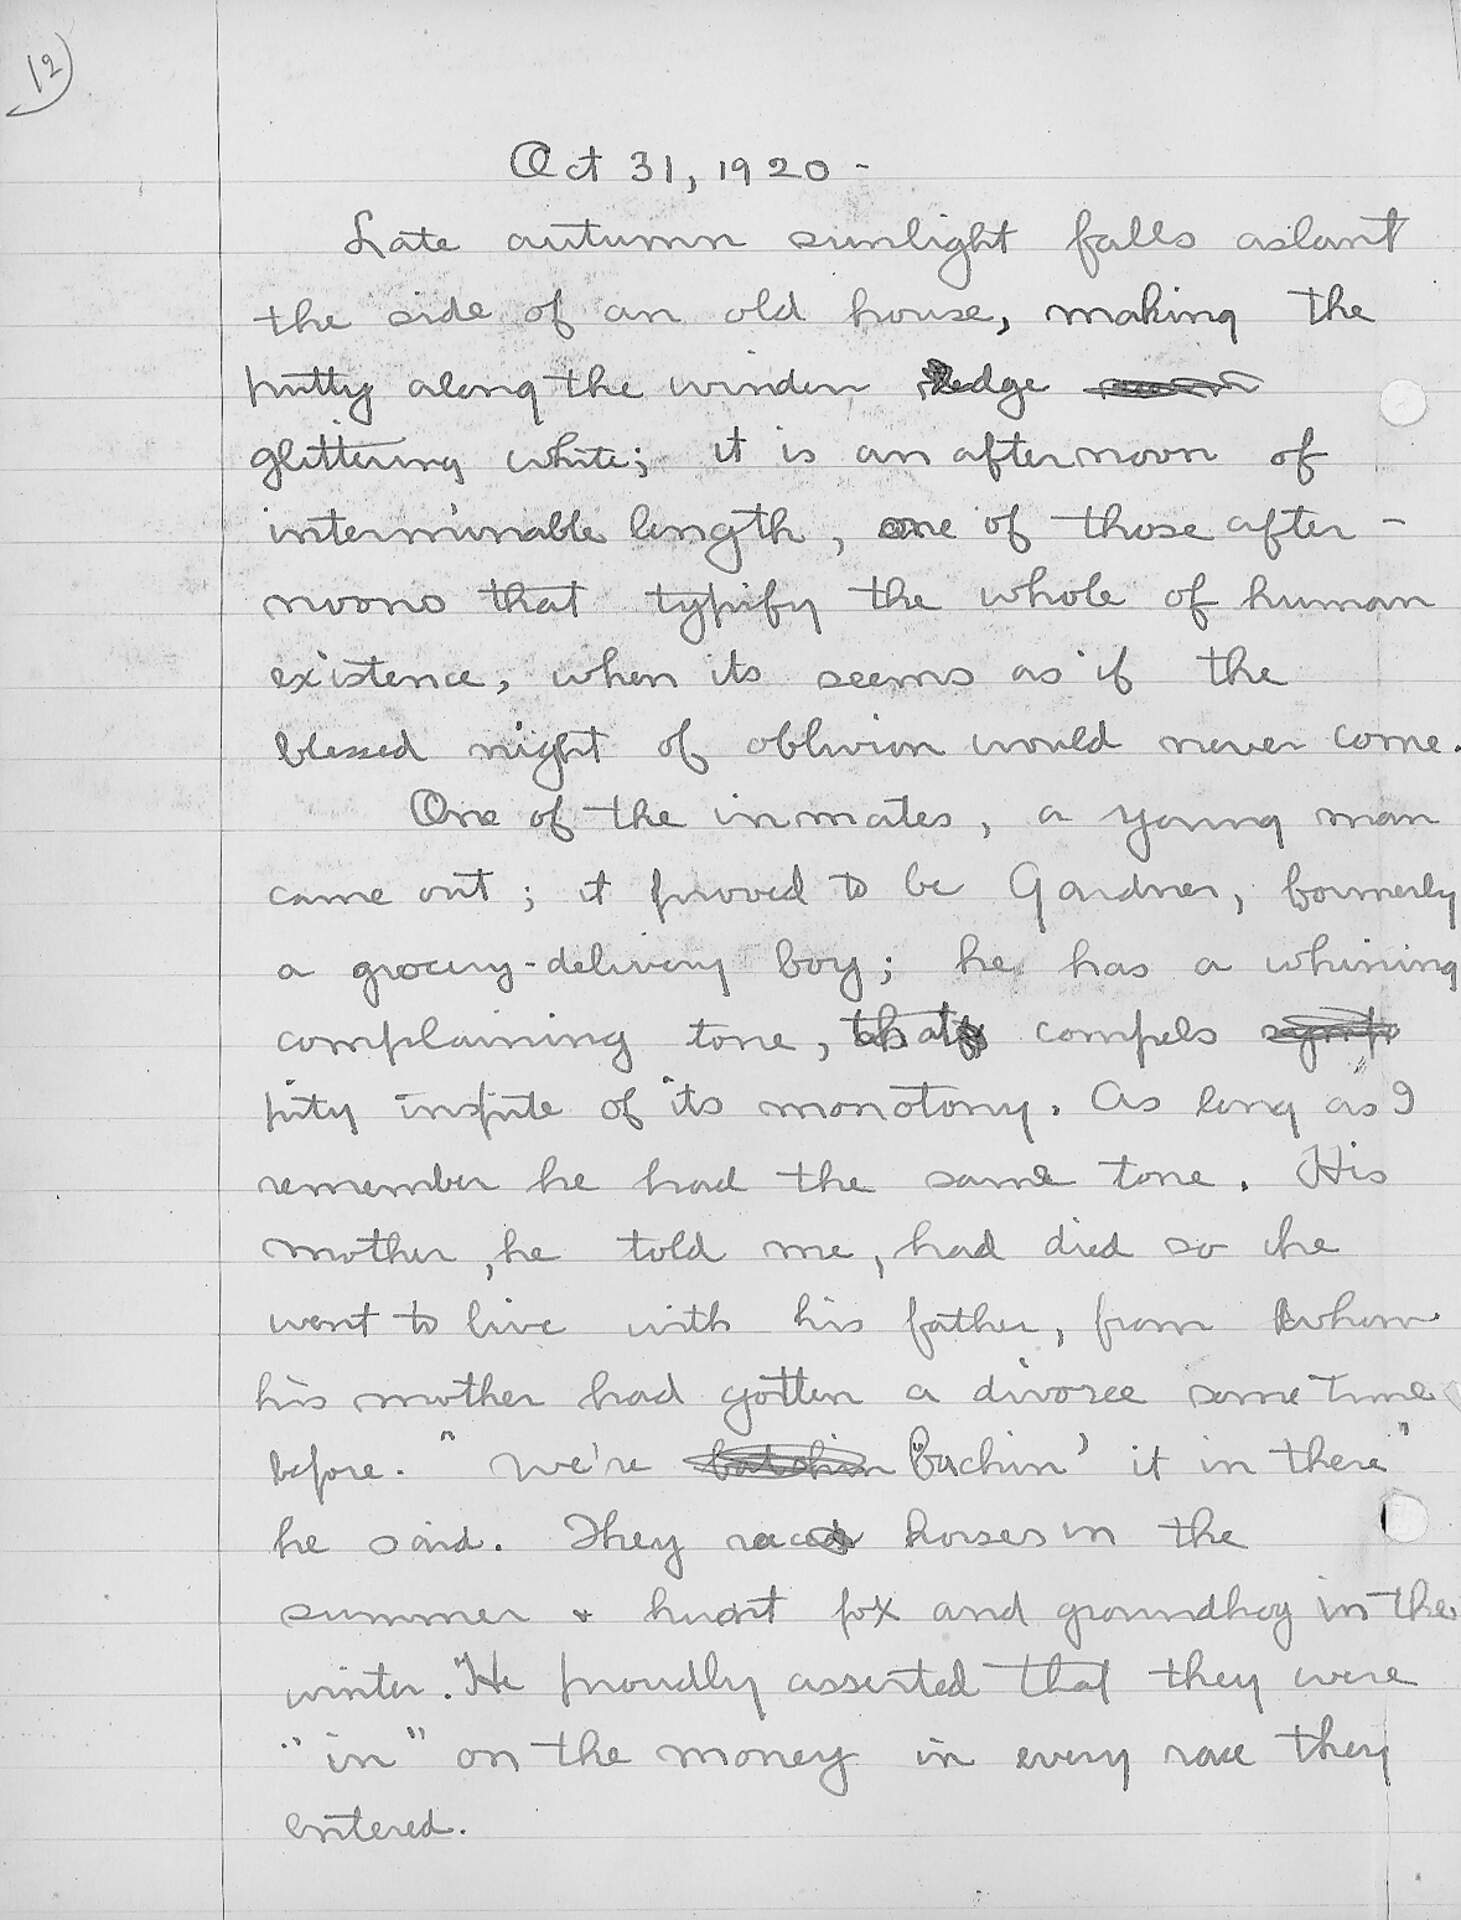 12
Oct 31, 1920 -
Late autumn sunlight falls aslant
the side of an old house, making the
putty along the winden ledge
glittering white; it is an afternoon of
interminable length, one of those after -
noons that typify the whole of human
existence, when its seems as if the
blessed night of oblivion would never come.
One of the inmates, a young man
came out; it proved to be Gardner, formerly
a grocery-delivery boy; he has a whining
complaining tone, that compels symp
pity inspite of its monotony. As long as I
remember he had the same tone. His
mother, he told me, had died so he
went to live with his father, from whom
his mother had gotten a divorce some time
before. " We're batchin "Bachin' it in there"
he said. They race horses in the
summer & hunt fox and groundhog in the
winter. "He proudly asserted that they were
"in" on the money in every race they
entered.